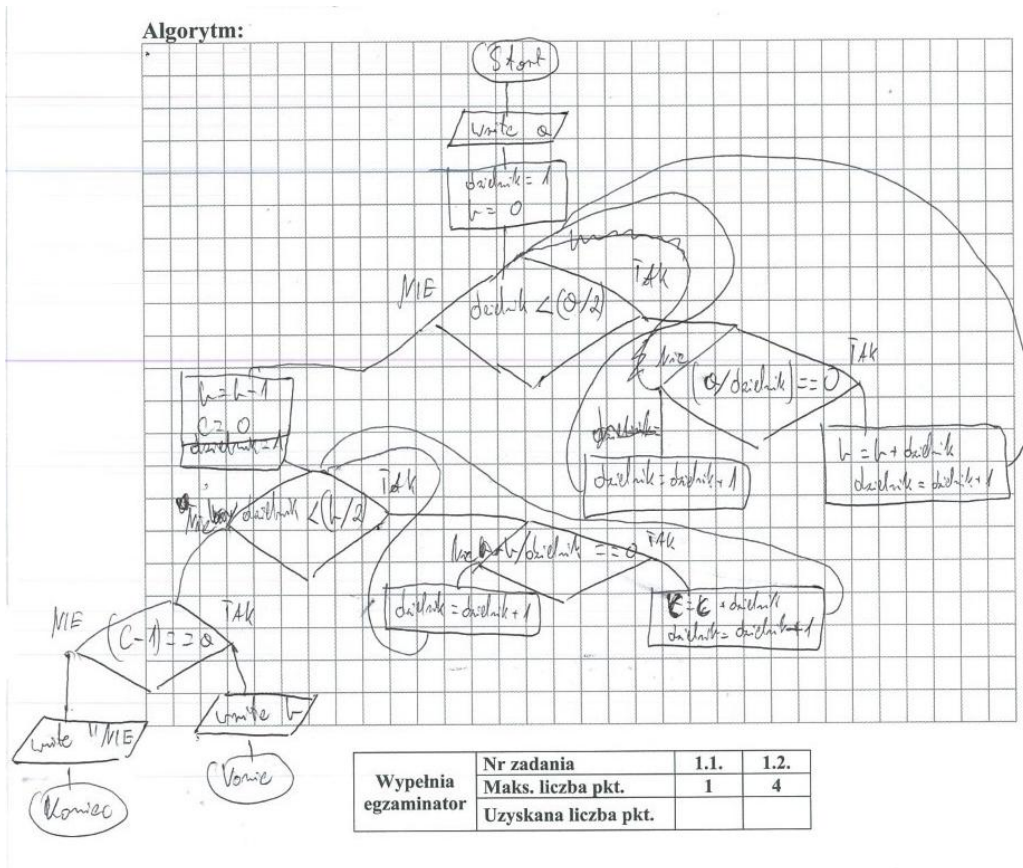 Algorytm:
Start
write a
dzielnik = 1
b = 0
NIE
dzielnik < (a/2)
TAK
Nie
(a/dzielnik) == 0
TAK
b = b-1
C = 0
dzielnik = 1
dzielnik = dzielnik + 1
b = b + dzielnik
dzielnik = dzielnik + 1
Nie
dzielnik < (b/2)
TAK
Nie
b/dzielnik == 0
TAK
dzielnik = dzielnik + 1
c = c + dzielnik
dzielnik = dzielnik + 1
NIE
(C-1) == a
TAK
write "NIE
write b
Koniec
Koniec
Wypełnia egzaminator
Nr zadania 1.1. 1.2.
Maks. liczba pkt. 1 4
Uzyskana liczba pkt.